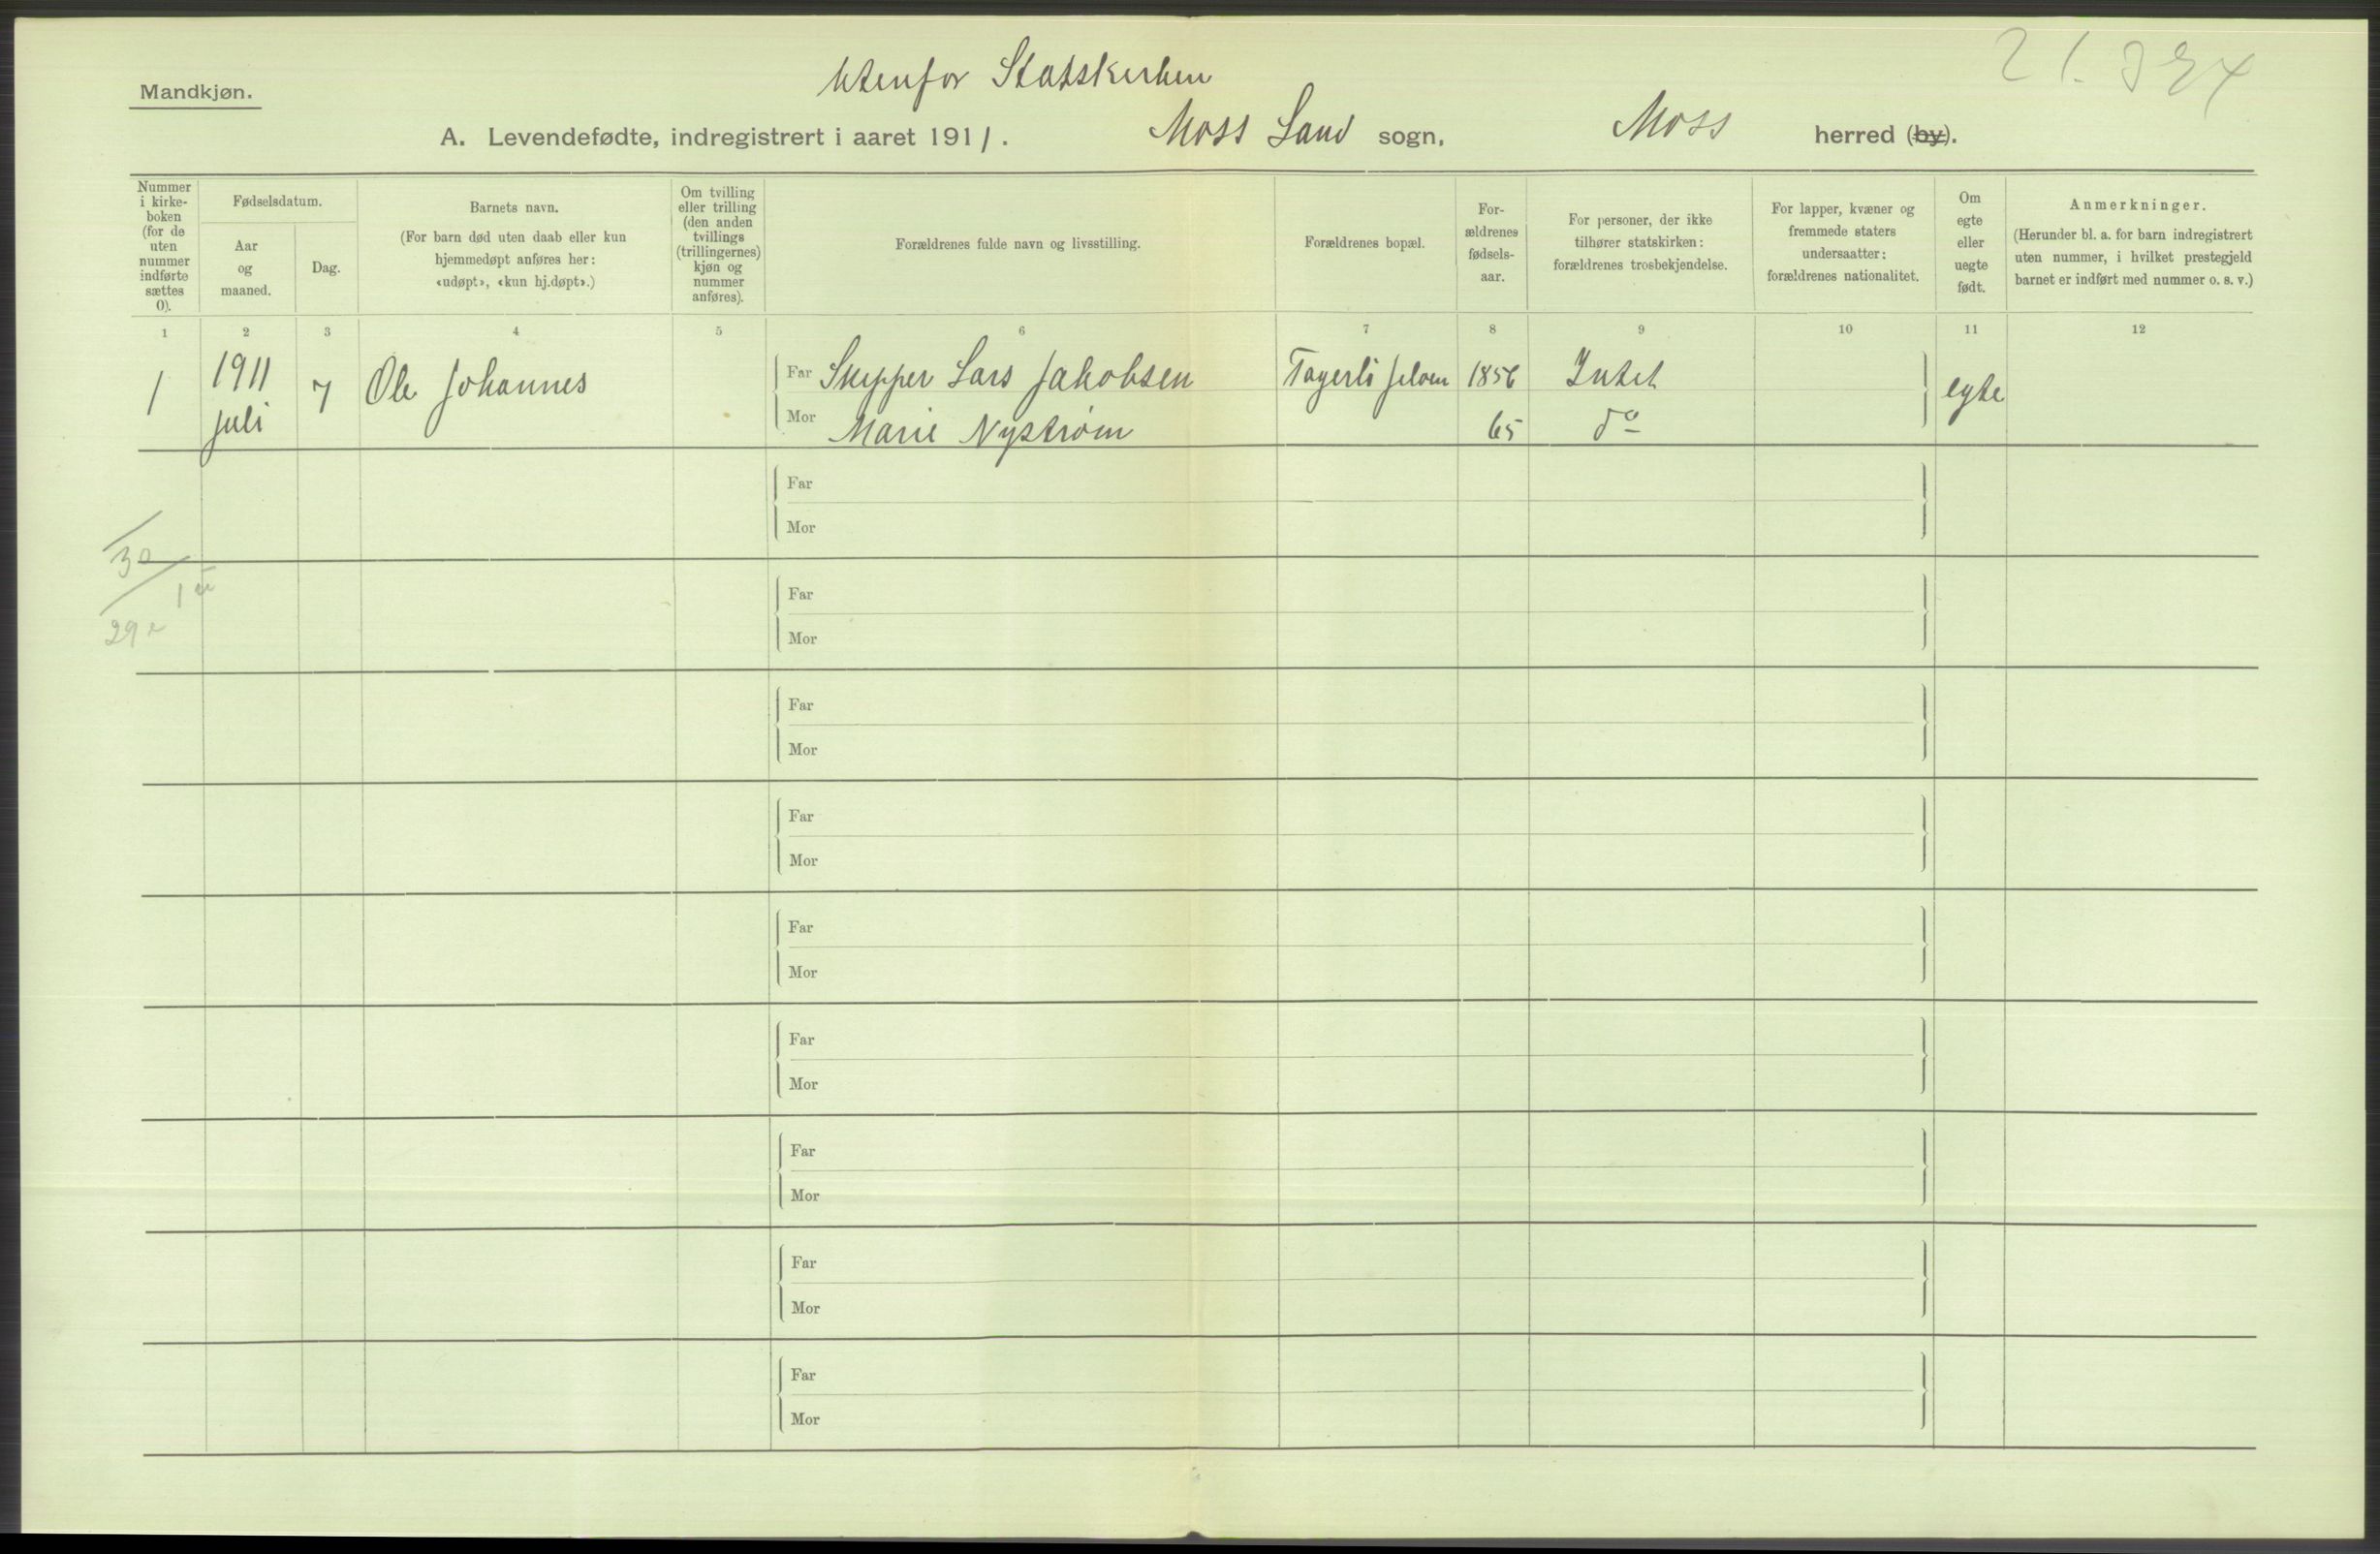 Utenfor Statskirken
Mandkjøn.
A. Levendefødte, indregistrert i aaret 1911. Moss Land sogn, Moss herred (by).
Nummer i kirke-boken (for de uten nummer indførte sættes 0).
Fødselsdatum.
Aar og maaned.
Dag.
Barnets navn.
(For barn død uten daab eller kun hjemmedøpt anføres her: «udøpt», «kun hj.døpt».)
Om tvilling eller trilling (den anden tvillings (trillingernes) kjøn og nummer anføres).
Forældrenes fulde navn og livsstilling.
Forældrenes bopæl.
For-ældrenes fødsels-aar.
For personer, der ikke tilhører statskirken: forældrenes trosbekjendelse.
For lapper, kvæner og fremmede staters undersaatter: forældrenes nationalitet.
Om egte eller uegte født.
Anmerkninger.
(Herunder bl. a. for barn indregistrert uten nummer, i hvilket prestegjeld barnet er indført med nummer o. s. v.)
1 2 3 4 5 6 7 8 9 10 11 12
1 1911 juli 7 Ole Johannes Far Skipper Lars Jakobsen Jeløen 1856 Intet egte
Mor Marie Nystrøm 65 do
Far
Mor
30
1
29
Far
Mor
Far
Mor
Far
Mor
Far
Mor
Far
Mor
Far
Mor
Far
Mor
Far
Mor